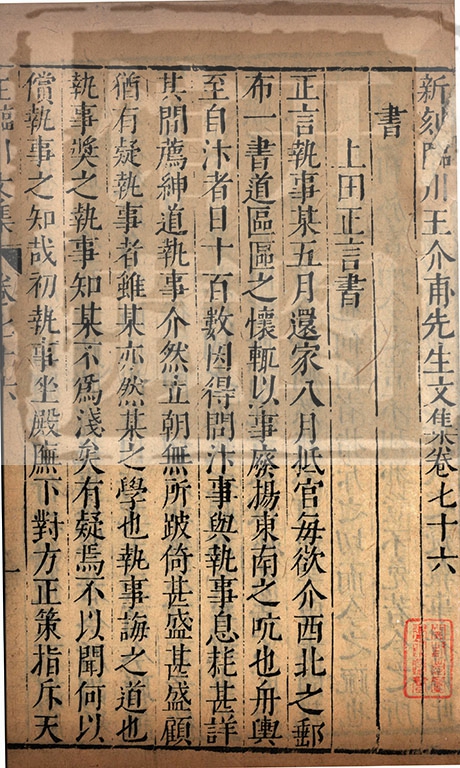 新刻臨川王介甫先生文集卷七十六
書
上田正言書
正言執事某五月還家八月抵官毎欲介西北之郵
布一書道區區之懷輒以事廢揚東南之吭也舟輿
至自汴者日十百數因得問汴事與執事息耗甚詳
其間薦紳道執事介然立朝無所跛倚甚盛甚盛顧
猶有疑執事者雖某亦然某之學也執事誨之道也
執事奬之執事知某不爲淺矣有疑焉不以聞何以
償執事之知哉初執事坐殿廡下對方正策指斥天
王臨川文集 卷七十六 一